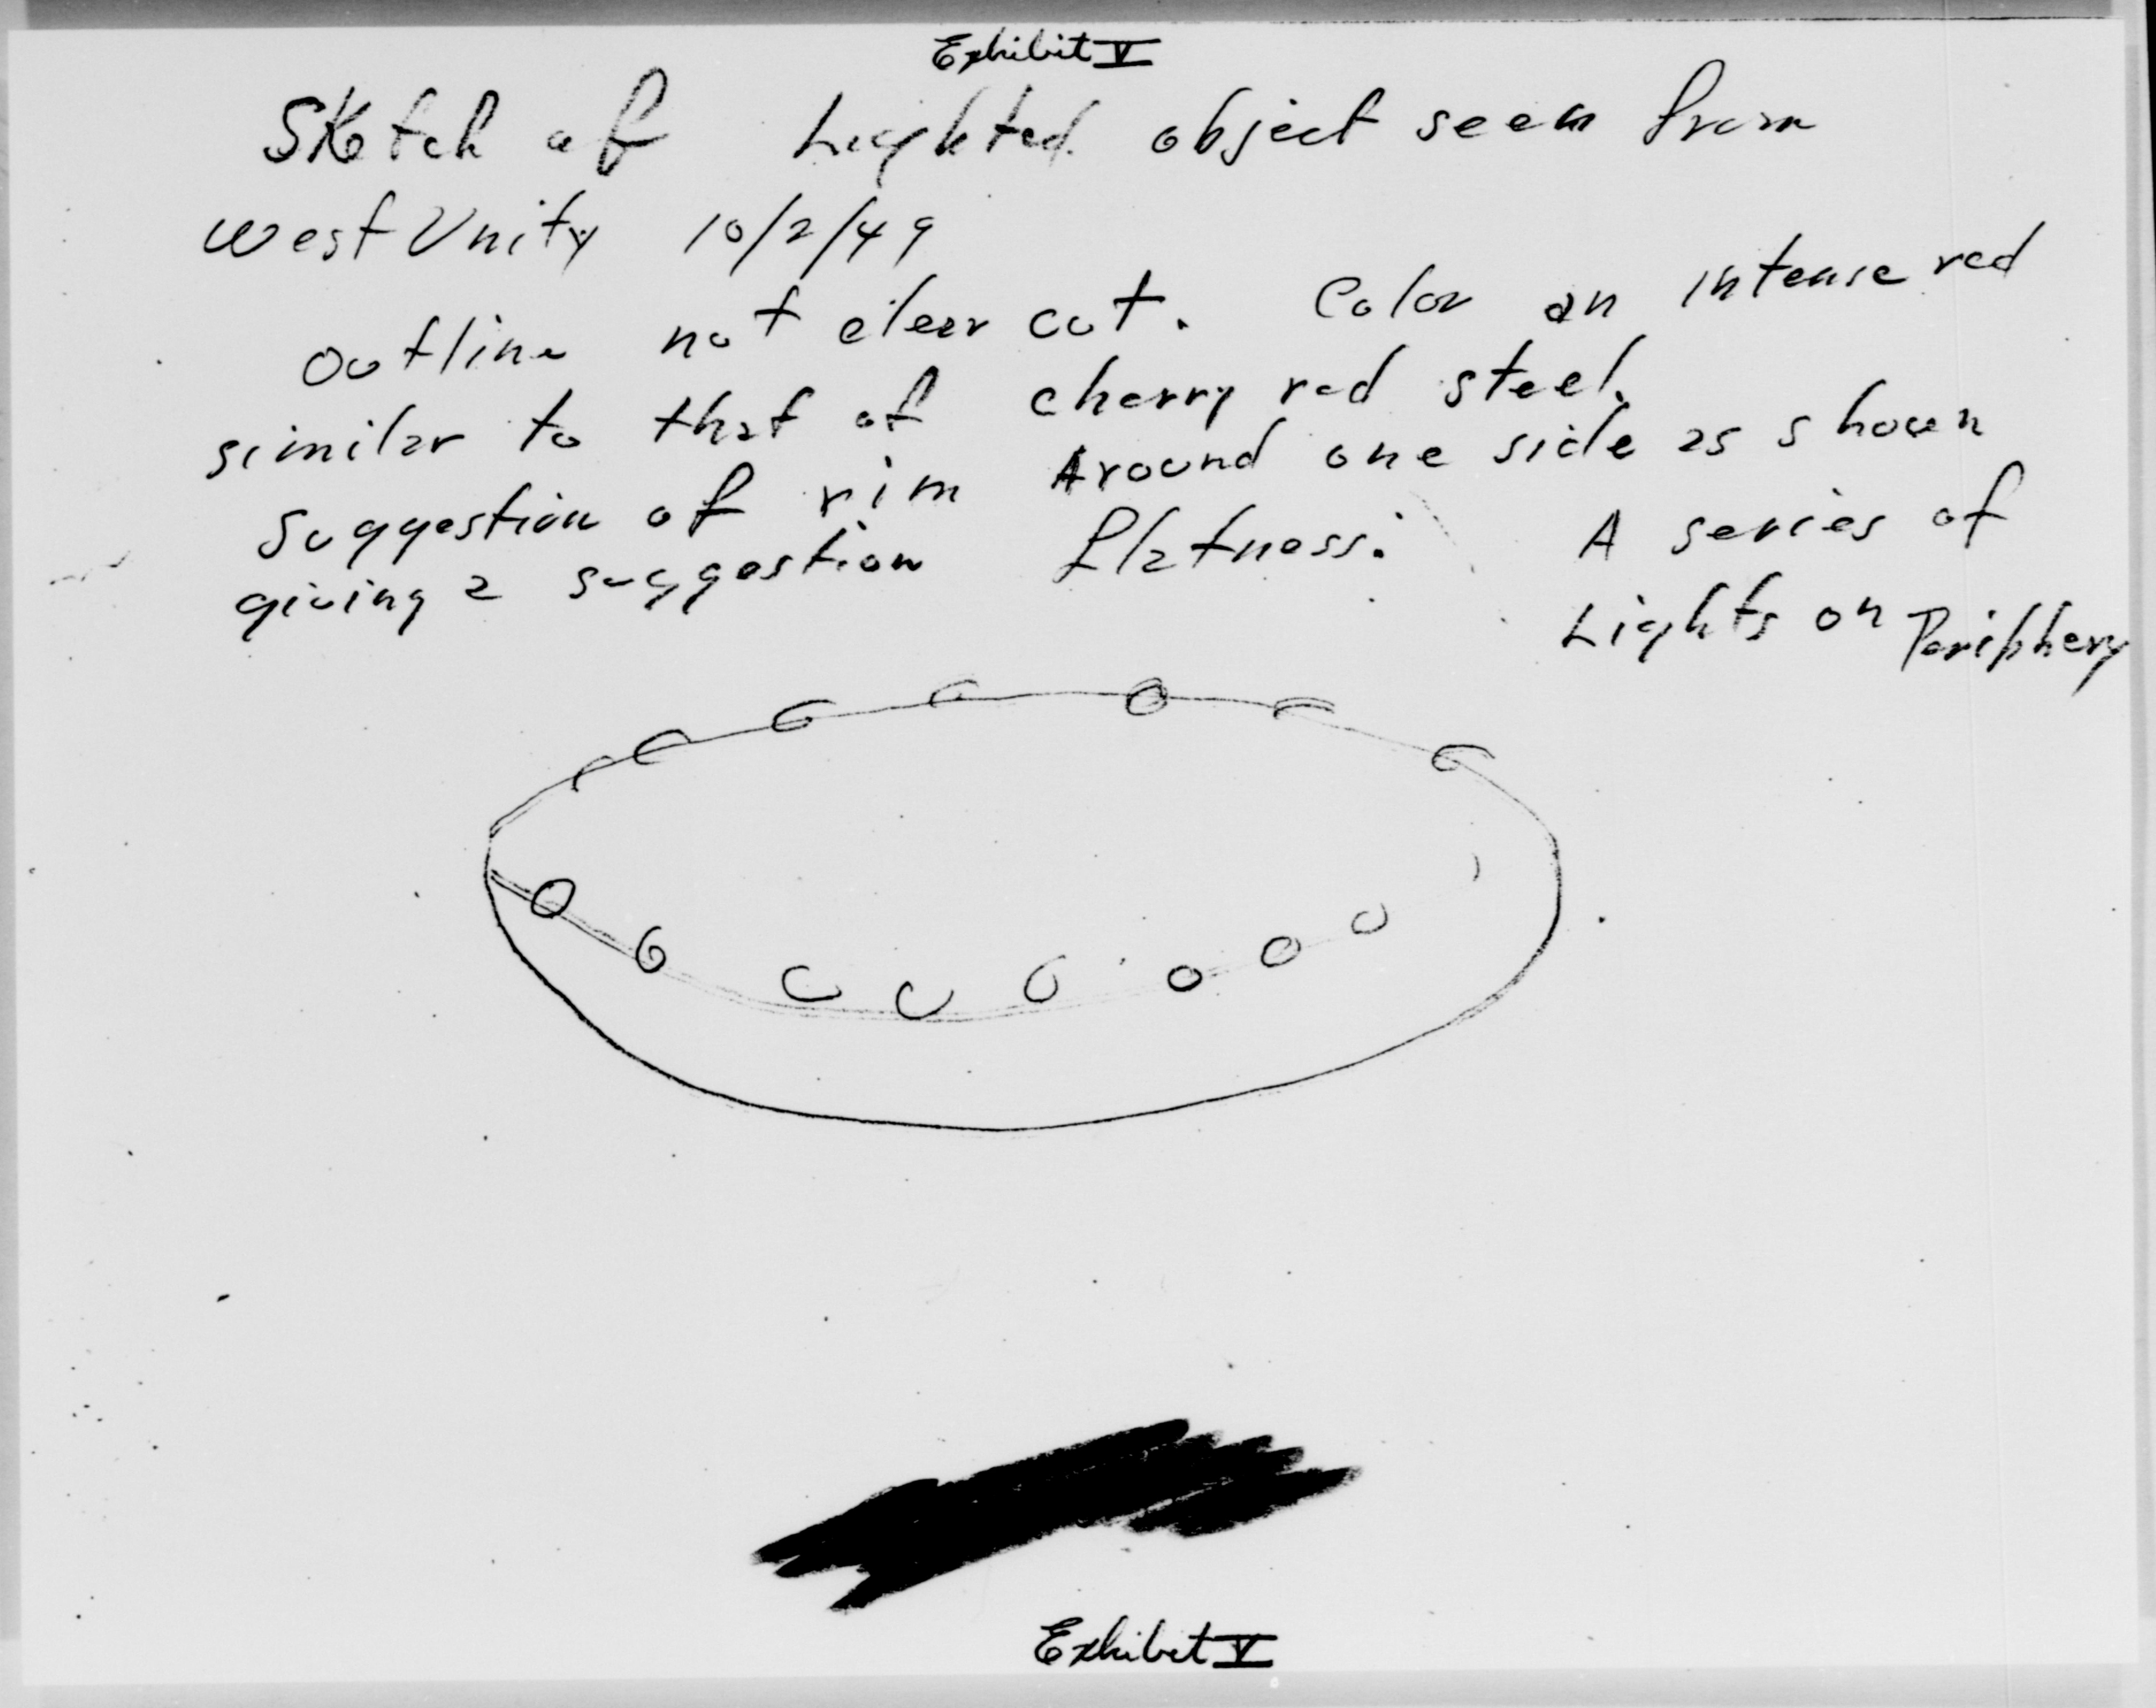 Exhibit V
Sketch of Lighted object seen from
West Unity 10/2/49
Outline not clear cut. Color an intense red
similar to that of cherry red steel.
Suggestion of rim Around one side as shown
giving a suggestion flatness. A series of
Lights on Periphery
Exhibit V